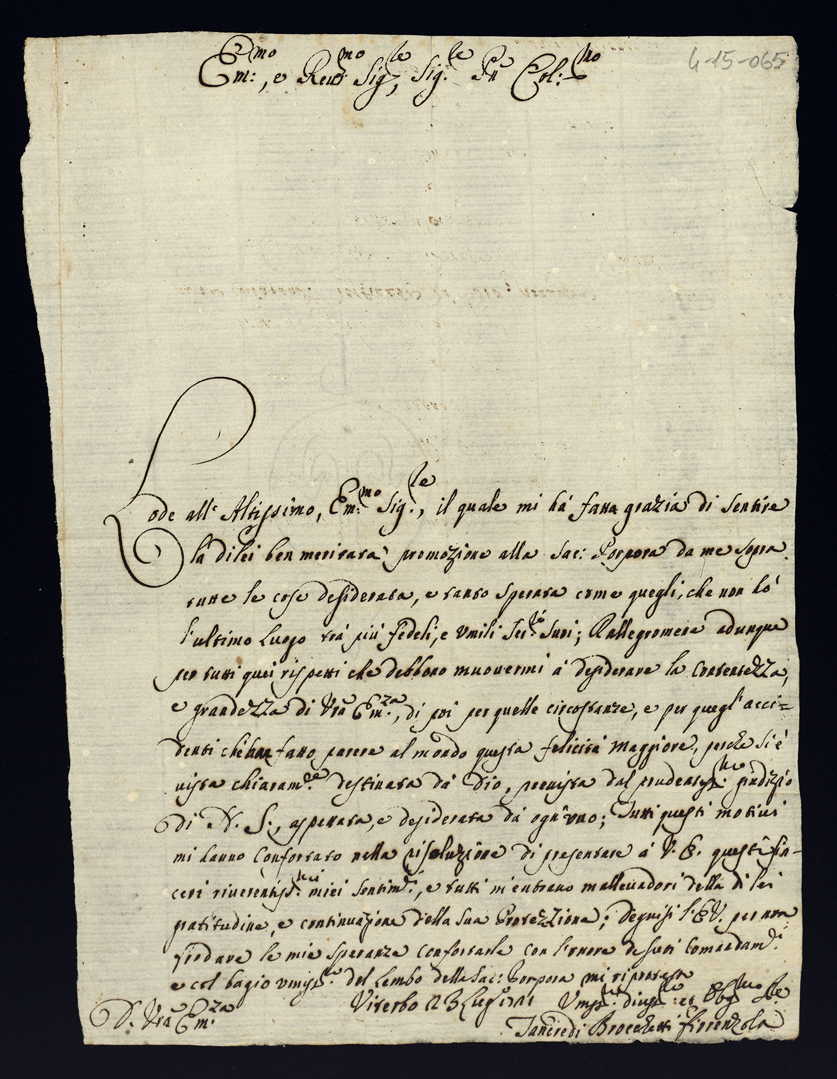 Em:mo, e Revd:mo Sig:le, Sig:le Pn Col:mo
4-15-065
Lode all' Altissimo, Em:mo Sig:le, il quale mi hà fatta grazia di sentire
la di lei ben meritata promozione alla Sac: Porpora da me sopra
tutte le cose desiderata, e tanto sperata come quegli, che non hò
l'ultimo luogo trà più fedeli, e umili Ser:ri Suoi; Rallegromene adunque
per tutti quei rispetti che debbono muovermi à desiderare la contentezza,
e grandezza di Vra Em:za, di poi per quelle circostanze, e per quegl'acci-
denti ch'han fatto parere al mondo questa felicità maggiore, perche si è
vista chiaram:te destinata dà Dio, prevista dal prudentiss:mo giudizio
di N. S., aspettata, e desiderata dà ogn'uno; Tutti questi motivi
mi hanno confortato nella risoluzione di presentare à V. E. questi sin-
ceri riverentiss:mi miei sentim:ti, e tutti m'entrano mallevadori della di lei
gratitudine, e continuazione della sua Protezzione; degnisi l'E.V. per non
frodare le mie speranze confortarle con l'onore de suoi comandam:ti
e col bagio umiss:mo del Lembo della Sac: Porpora mi riprotesto
D. Vra Em:za
Viterbo
Umiss:mo
Tancredi Brocchetti Fiorenzola